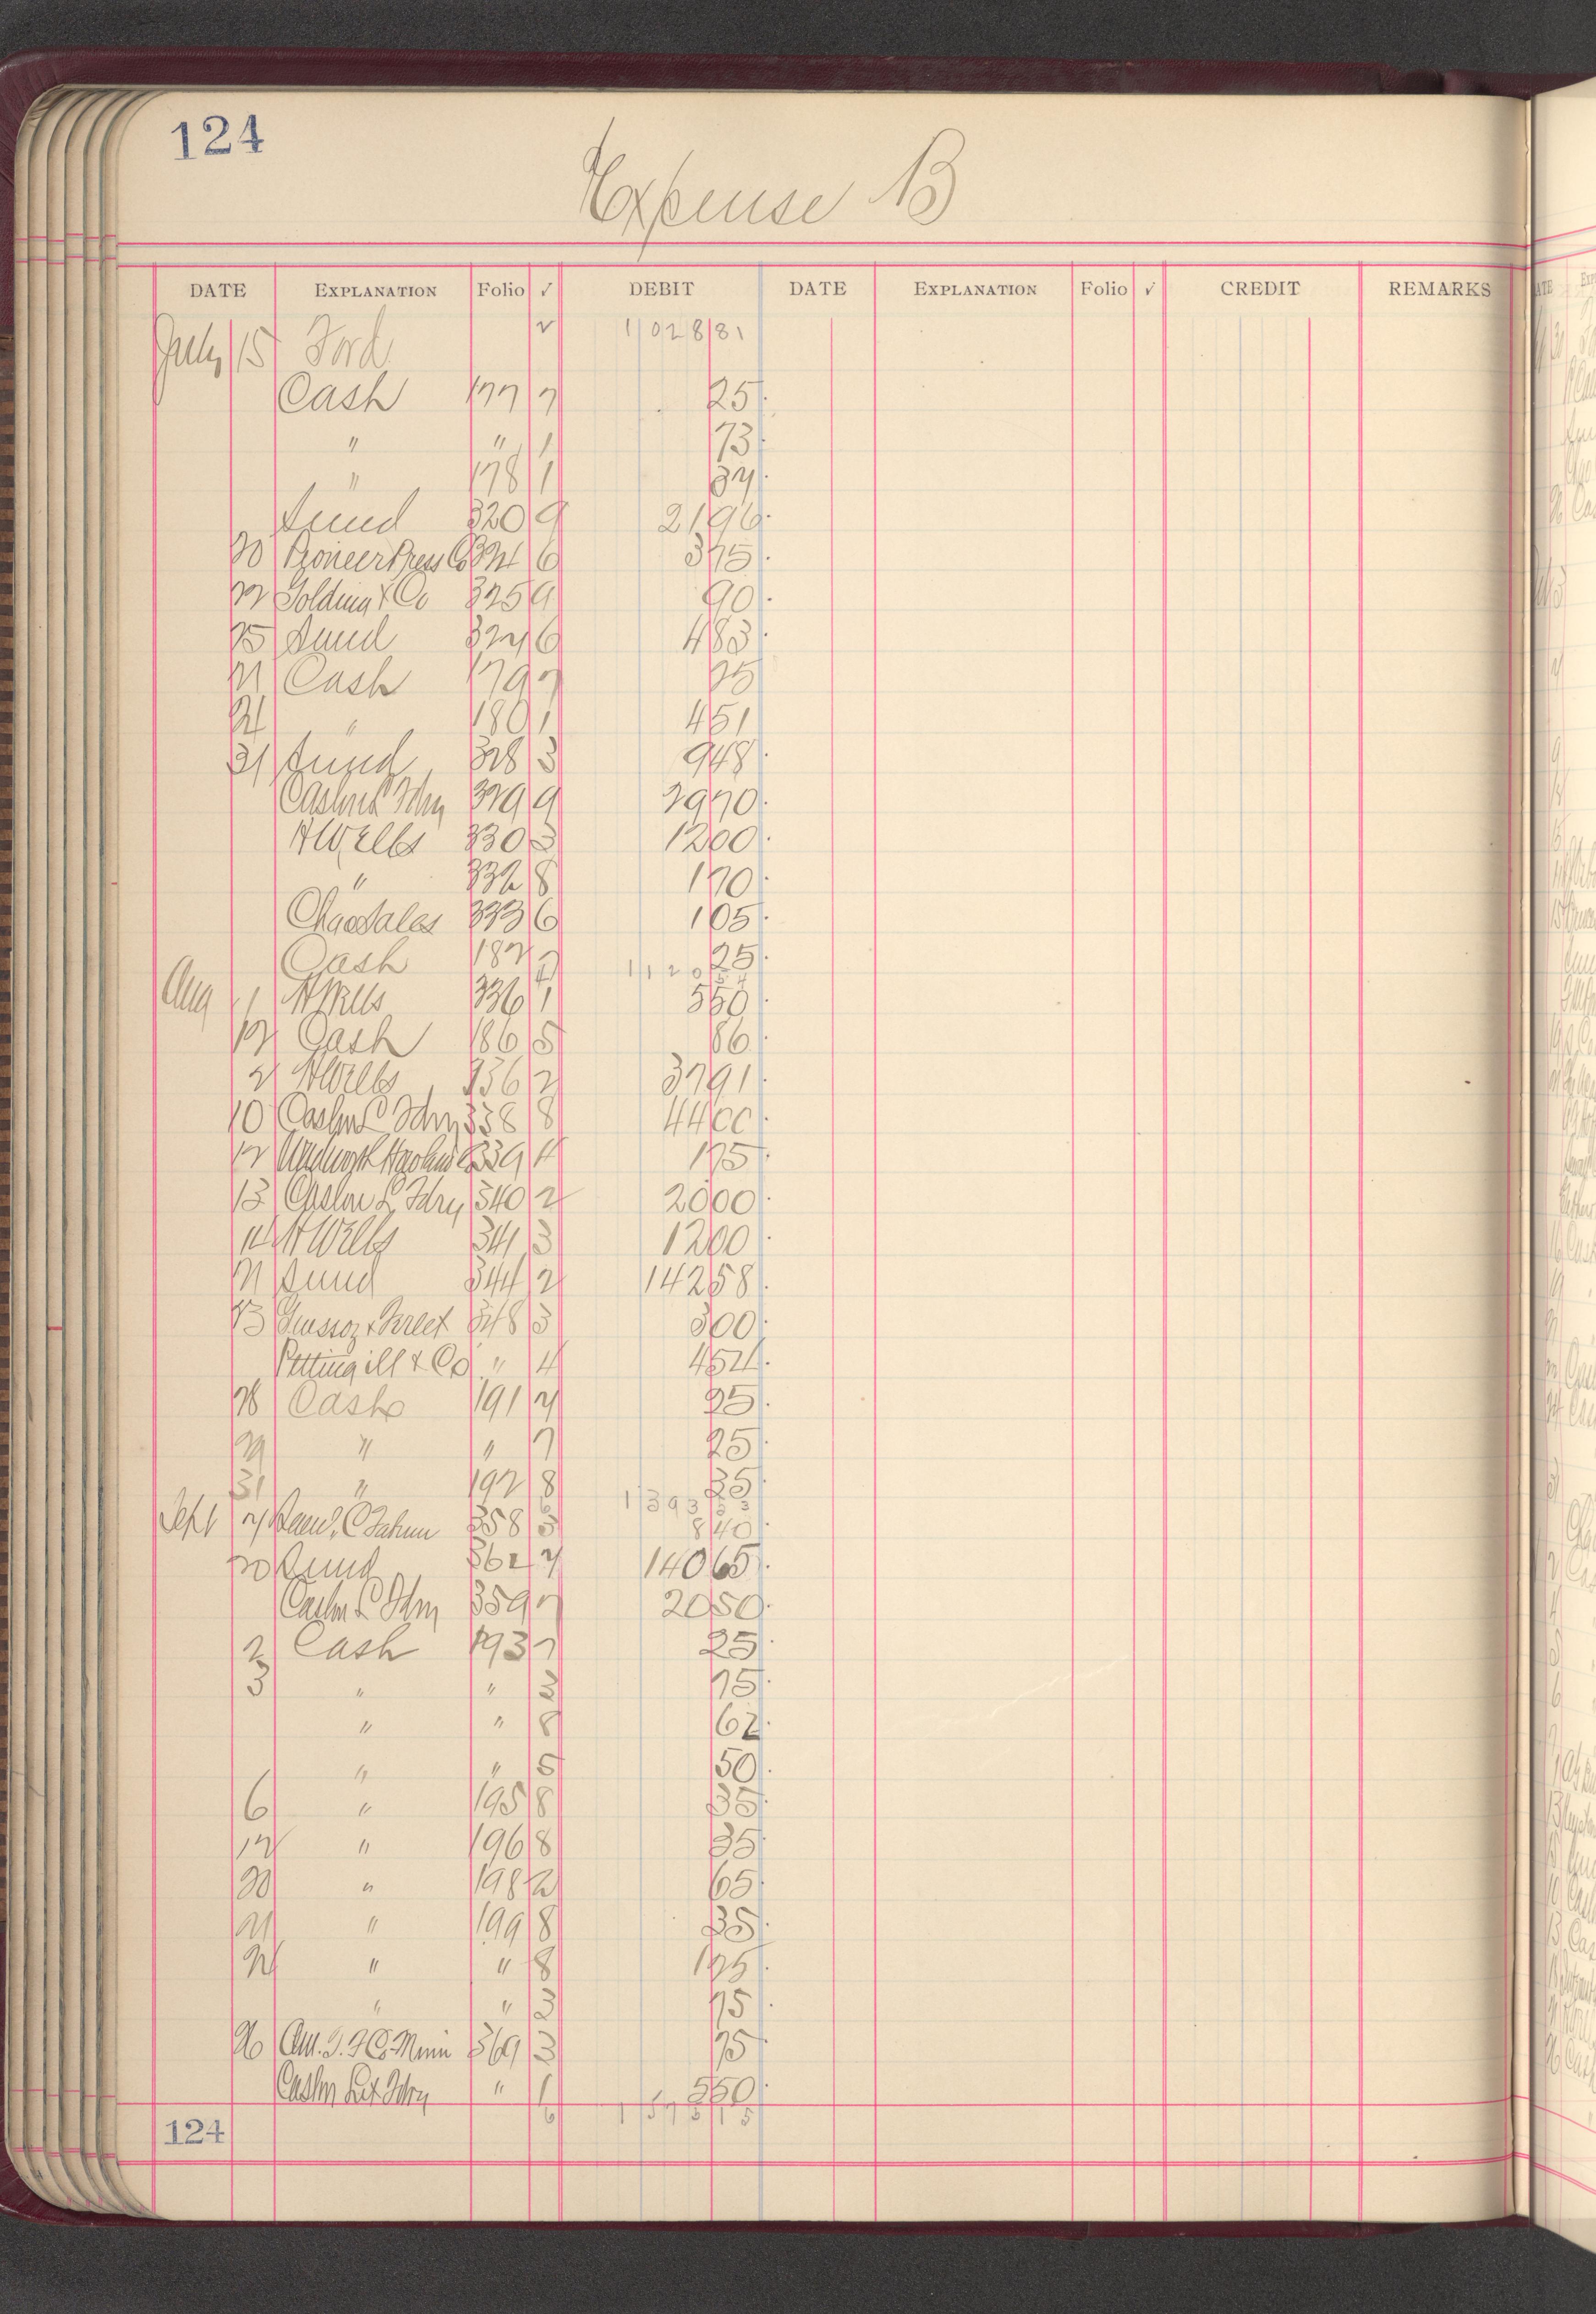 124
Expense B
DATE EXPLANATION Folio √ DEBIT DATE EXPLANATION Folio √ CREDIT REMARKS
July 15 Ford √ 1 028 81
Cash 177 7 25
" " 1 73
" 178 1
Sund 320 9 21 96
20 Pioneer Press Co 324 6 3 75
22 Golding & Co 325 9 90
25 Sund 327 6 4 83
21 Cash 179 7 25
24 " 180 1 4 51
31 Sund 328 3 9 48
Caslon L Fdry 329 9 29 70
H Wells 330 3 12 00
" 332 8 1 70
Chas Sales 333 6 1 05
Cash 182 7 25
Aug 1 H Wells 336 1 5 50
12 Cash 186 5 86
2 H Wells 336 2 37 91
10 Caslon L Fdry 338 8 44 00
12 339 4 1 75
13 Caslon L Fdry 340 2 20 00
14 H Wells 341 3 12 00
21 Sund 344 2 142 58
23 348 3 3 00
Pettingill & Co " 4 4 54
26 Cash 191 7 25
29 " " 7 25
31 " 192 8 35
Sept 358 3 8 40
20 Sund 362 7 140 65
Caslon L Fdry 359 7 20 50
2 Cash 193 7 25
3 " " 3 75
" " 8 62
" " 5 50
6 " 195 8 35
12 " 196 8 35
20 " 198 2 65
21 " 199 8 35
24 " " 8 1 25
" " 3 75
26 Am. T. F Co Minn 369 3 75
Caslon Let Fdry " 1 5 50
124